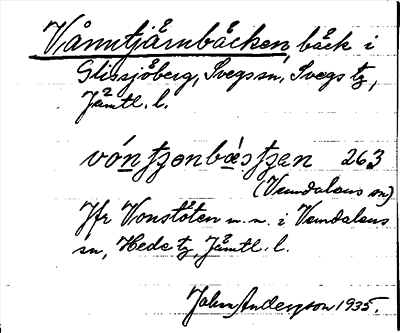 Vånntjärnbäcken, bäck i
Glissjöberg, Svegs sn, Svegs tg,
Jämtl. l.
vóntʒenbæstʒan 263
(Vemdalens sn)
Jfr Vonstöten m. n. i Vemdalens
sn, Hede tg, Jämtl. l.
John Anderzon 1935.